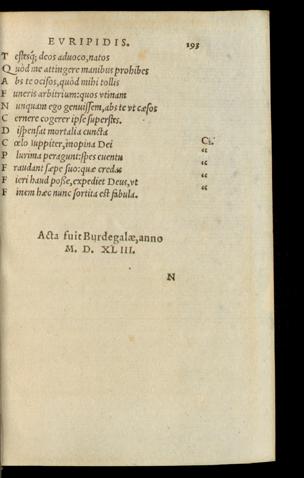 EVRIPIDIS. 193
T estesq́; deos aduoco, natos
Q uòd me attingere manibus prohibes
A bs te ocisos, quòd mihi tollis
F uneris arbitrium: quos vtinam
N unquam ego genuissem, abs te vt cæsos
C ernere cogerer ipse superstes.
D ispensat mortalia cuncta
C œlo Iuppiter, inopina Dei Ci.
P lurima peragunt: spes euentu “
F raudant sæpe suo: quæ credas “
F ieri haud posse, expediet Deus, vt “
F inem hæc nunc sortita est fabula. “
Acta fuit Burdegalæ, anno
M. D. XLIII.
N